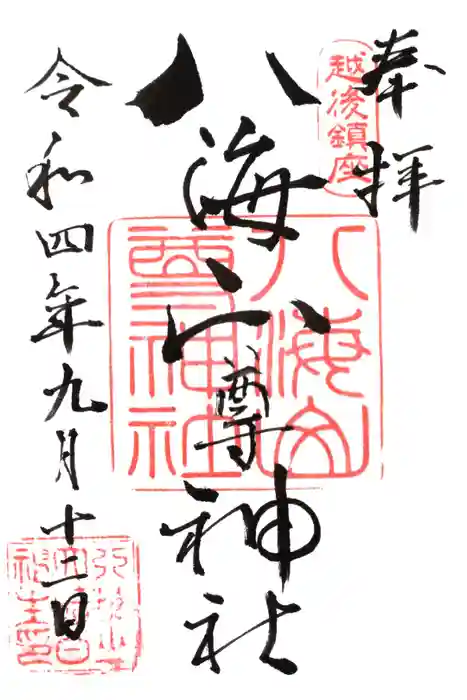 奉拝
越後鎮座
八海山尊神社
八海山尊神社
令和四年九月十二日